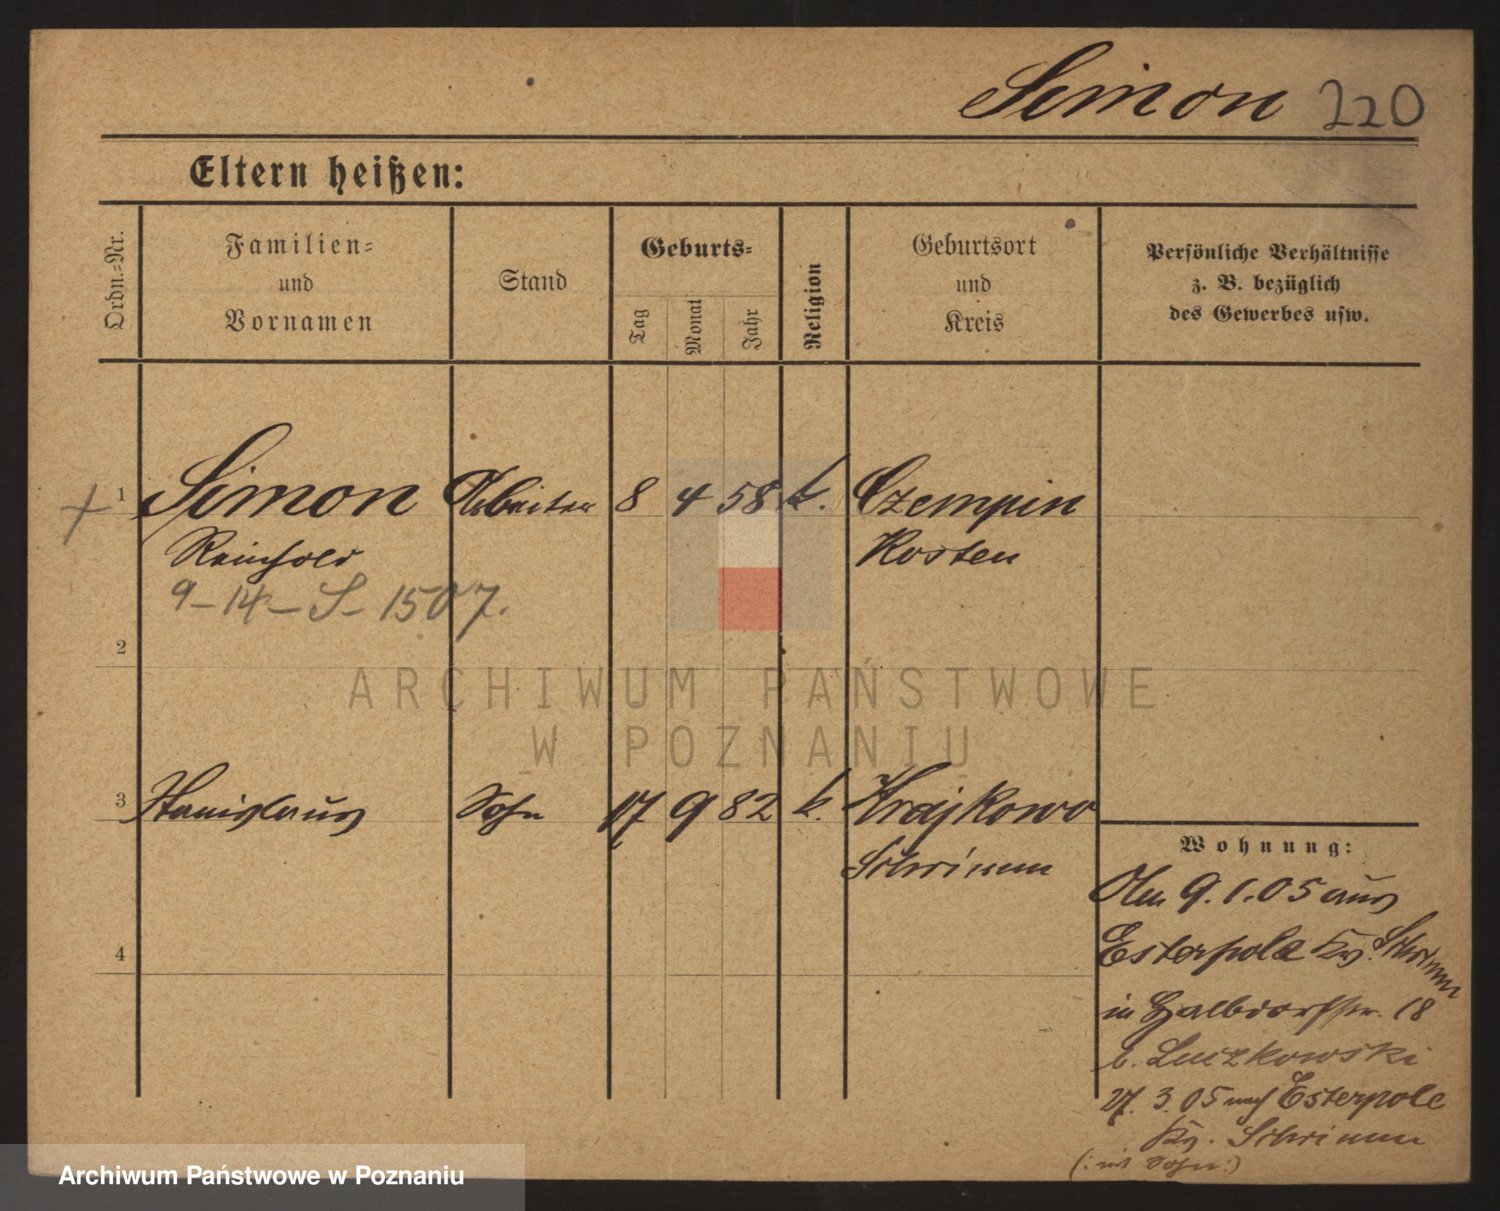 Simon 220
Eltern heißen:
Ordn.-Nr.
Familien-
und
Vornamen
Stand
Geburts-
Tag
Monat
Jahr
Religion
Geburtsort
und
Kreis
Persönliche Verhältnisse
z. B. bezüglich
des Gewerbes usw.
1 Simon Arbeiter 8 4 58 k. Czempin
Reinhold Kosten
9-14-S-1507.
2
ARCHIWUM PAŃSTWOWE
W POZNANIU
3 Stanislaus Sohn 17 9 82 k. Krajkowo
Schrimm
4
Wohnung:
Am 9.1.05 aus
Esterpole Kr. Schrimm
in Halbdorfstr. 18
b. Luczkowski
27. 3. 05 nach Esterpole
Kr. Schrimm
(: mit Sohn :)
Archiwum Państwowe w Poznaniu